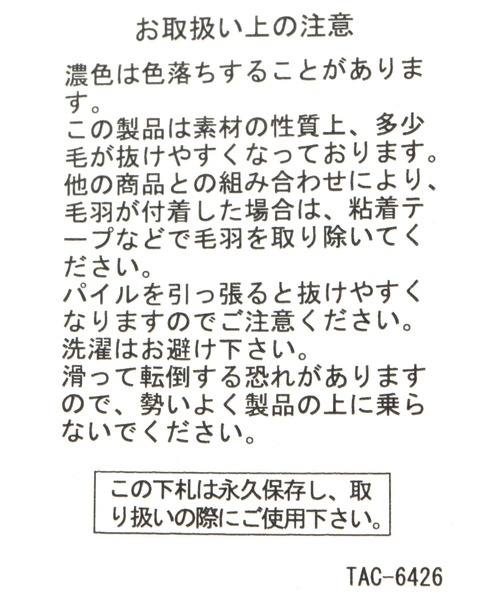 お取扱い上の注意
濃色は色落ちすることがありま
す。
この製品は素材の性質上、多少
毛が抜けやすくなっております。
他の商品との組み合わせにより、
毛羽が付着した場合は、粘着テ
ープなどで毛羽を取り除いてく
ださい。
パイルを引っ張ると抜けやすく
なりますのでご注意ください。
洗濯はお避け下さい。
滑って転倒する恐れがあります
ので、勢いよく製品の上に乗ら
ないでください。
この下札は永久保存し、取
り扱いの際にご使用下さい。
TAC-6426